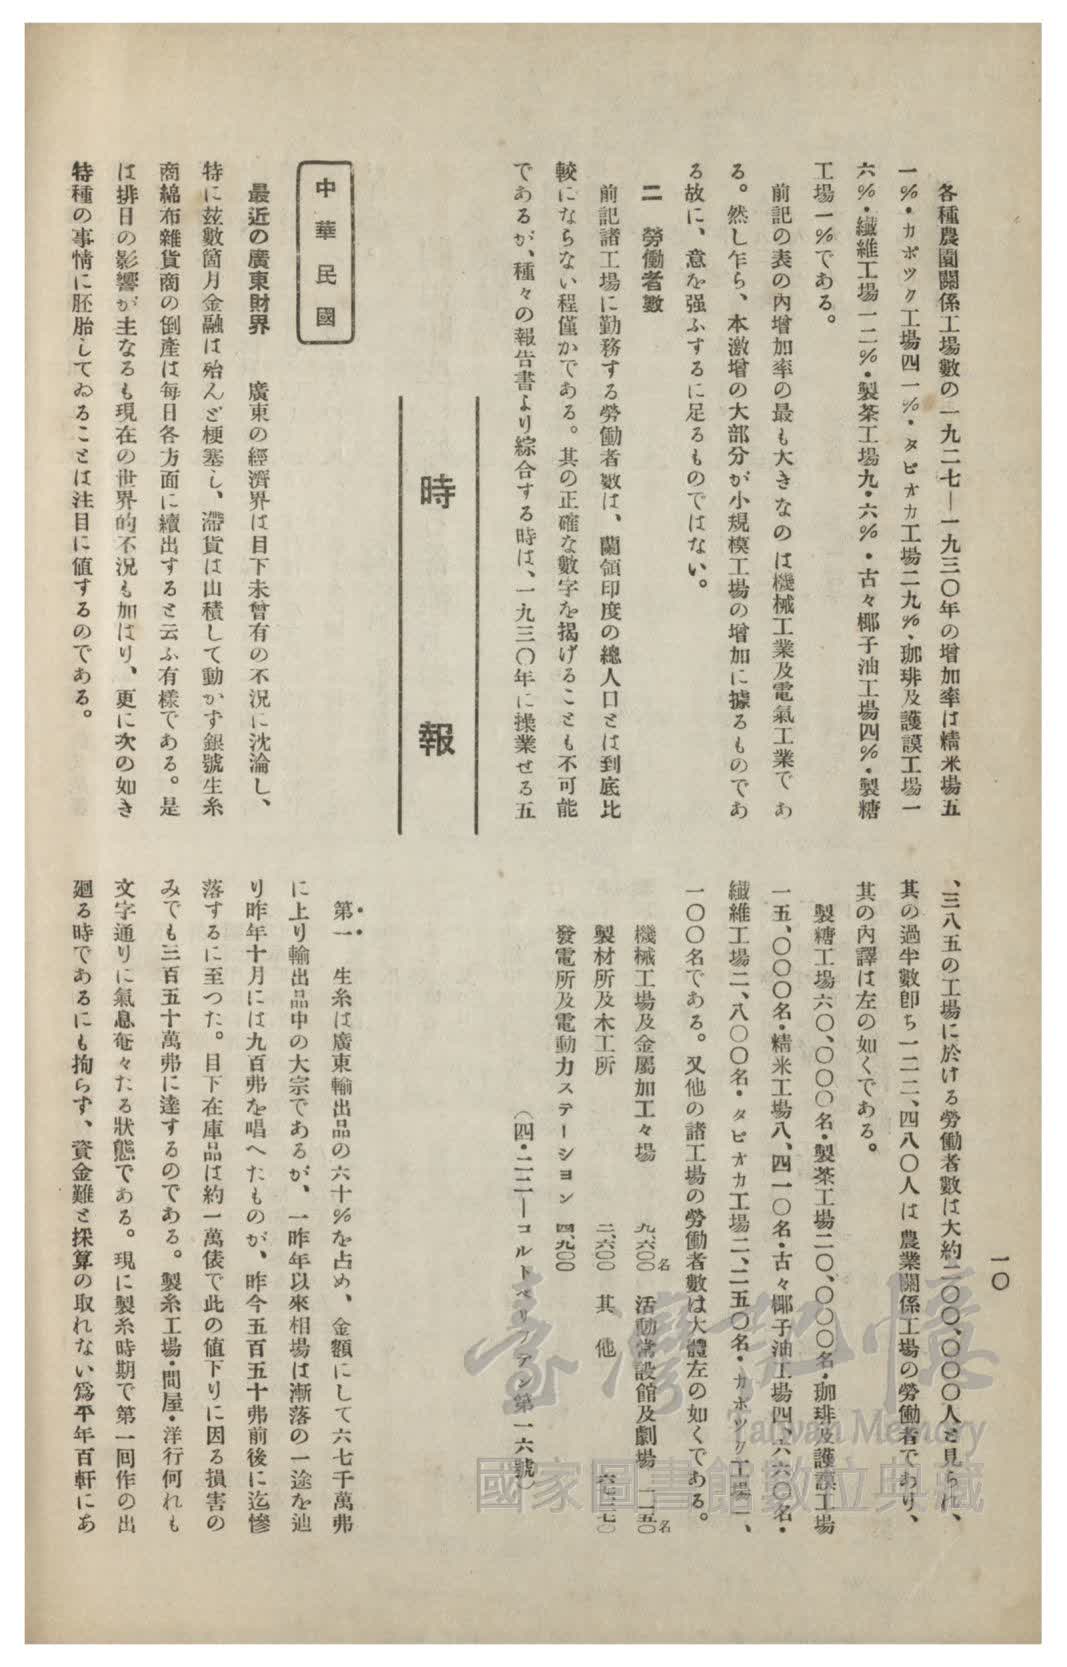 一〇
各種農園關係工場數の一九二七―一九三〇年の增加率は精米場五
一%・カポック工場四一%・タピオカ工場二九%、珈琲及護謨工場一
六%・纖維工場一二%・製茶工場九・六%・古々椰子油工場四%・製糖
工場一%である。
前記の表の內增加率の最も大きなのは機械工業及電氣工業であ
る。然し乍ら、本激增の大部分が小規模工場の增加に據るものであ
る故に、意を强ふするに足るものではない。
二 勞働者數
前記諸工場に勤務する勞働者數は、蘭領印度の總人口とは到底比
較にならない程僅かである。其の正確な數字を揭げることも不可能
であるが、種々の報告書より綜合する時は、一九三〇年に操業せる五
、三八五の工場に於ける勞働者數は大約二〇〇、〇〇〇人と見られ、
其の過半數卽ち一二二、四八〇人は農業關係工場の勞働者であり、
其の內譯は左の如くである。
製糖工場六〇、〇〇〇名・製茶工場二〇、〇〇〇名・珈琲及護謨工場
一五、〇〇〇名・精米工場八、四一〇名・古々椰子油工場四、六六〇名・
纖維工場二、八〇〇名・タピオカ工場二、二五〇名・カポック工場一、
一〇〇名である。又他の諸工場の勞働者數は大體左の如くである。
機械工場及金屬加工々場 九、六〇〇名 活動常設館及劇場 一一五〇名
製材所及木工所 二、六〇〇 其他
發電所及電動力ステーション 四、九〇〇
(四・二二―コルトベリアテン第一六號)
時報
中華民國
最近の廣東財界 廣東の經濟界は目下未曾有の不況に沈淪し、
特に玆數箇月金融は殆んど梗塞し、滯貨は山積して動かず銀號生糸
商綿布雜貨商の倒產は每日各方面に續出すると云ふ有樣である。是
は排日の影響が主なるも現在の世界的不況も加はり、更に次の如き
特種の事情に胚胎してゐることは注目に値するのである。
第一 生糸は廣東輸出品の六十%を占め、金額にして六七千萬弗
に上り輸出品中の大宗であるが、一昨年以來相場は漸落の一途を辿
り昨年十月には九百弗を唱へたものが、昨今五百五十弗前後に迄慘
落するに至つた。目下在庫品は約一萬俵で此の値下りに因る損害の
みでも三百五十萬弗に達するのである。製糸工場・問屋・洋行何れも
文字通りに氣息奄々たる狀態である。現に製糸時期で第一回作の出
廻る時であるにも拘らず、資金難と採算の取れない爲平年百軒にあ
臺灣記憶
Taiwan Memory
國家圖書館數位典藏